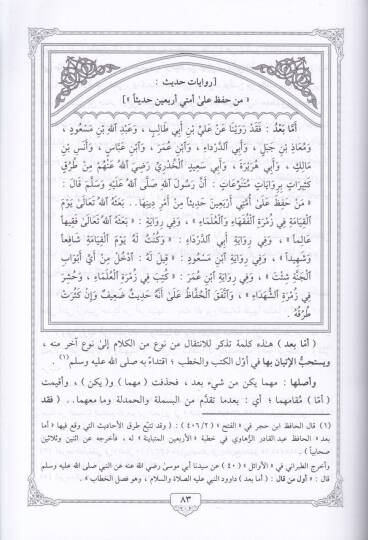 [ روايات حديث :
« من حفظ علىٰ أمتي أربعين حديثاً » ]
أَمَّا بَعْدُ : فَقَدْ رَوَيْنَا عَنْ عَلِيِّ بْنِ أَبِي طَالِبٍ ، وَعَبْدِ ٱللهِ بْنِ مَسْعُودٍ ،
وَمُعَاذِ بْنِ جَبَلٍ ، وَأَبِي ٱلدَّرْدَاءِ ، وَٱبْنِ عُمَرَ ، وَٱبْنِ عَبَّاسٍ ، وَأَنَسِ بْنِ
مَالِكٍ ، وَأَبِي هُرَيْرَةَ ، وَأَبِي سَعِيدٍ ٱلْخُدْرِيِّ رَضِيَ ٱللهُ عَنْهُمْ مِنْ طُرُقٍ
كَثِيرَاتٍ بِرِوَايَاتٍ مُتَنَوِّعَاتٍ : أَنَّ رَسُولَ ٱللهِ صَلَّى ٱللهُ عَلَيْهِ وَسَلَّمَ قَالَ :
« مَنْ حَفِظَ عَلَىٰ أُمَّتِي أَرْبَعِينَ حَدِيثاً مِنْ أَمْرِ دِينِهَا.. بَعَثَهُ ٱللهُ تَعَالَىٰ يَوْمَ
ٱلْقِيَامَةِ فِي زُمْرَةِ ٱلْفُقَهَاءِ وَٱلْعُلَمَاءِ » ، وَفِي رِوَايَةٍ : « بَعَثَهُ ٱللهُ تَعَالَىٰ فَقِيهاً
عَالِماً » ، وَفِي رِوَايَةِ أَبِي ٱلدَّرْدَاءِ : « وَكُنْتُ لَهُ يَوْمَ ٱلْقِيَامَةِ شَافِعاً
وَشَهِيداً » ، وَفِي رِوَايَةِ ٱبْنِ مَسْعُودٍ : « قِيلَ لَهُ : ٱدْخُلْ مِنْ أَيِّ أَبْوَابِ
ٱلْجَنَّةِ شِئْتَ » ، وَفِي رِوَايَةِ ٱبْنِ عُمَرَ : « كُتِبَ فِي زُمْرَةِ ٱلْعُلَمَاءِ ، وَحُشِرَ
فِي زُمْرَةِ ٱلشُّهَدَاءِ » ، وَٱتَّفَقَ ٱلْحُفَّاظُ عَلَىٰ أَنَّهُ حَدِيثٌ ضَعِيفٌ وَإِنْ كَثُرَتْ
طُرُقُهُ .
( أمّا بعد ) هذه كلمة تذكر للانتقال من نوع من الكلام إلىٰ نوع آخر منه ،
ويستحبُّ الإتيان بها في أوّل الكتب والخطب ؛ اقتداءً به صلى الله عليه وسلم (١) .
وأصلها : مهما يكن من شيء بعد ، فحذفت ( مهما ) و( يكن ) ، وأقيمت
( أمّا ) مُقامهما ؛ أي : بعدما تقدَّم من البسملة والحمدلة وما معهما.. ( فقد
(١) قال الحافظ ابن حجر في « الفتح » ( ٤٠٦/٢ ) : ( وقد تتبَّع طرق الأحاديث التي وقع فيها « أما
بعد » الحافظ عبد القادر الرُّهاوي في خطبة « الأربعين المتباينة » له ، فأخرجه عن اثنين وثلاثين
صحابياً ) .
وأخرج الطبراني في « الأوائل » ( ٤٠ ) عن سيدنا أبي موسىٰ رضي الله عنه عن النبي صلى الله عليه وسلم
قال : « أول من قال : ( أما بعد ) داوود النبي عليه الصلاة والسلام ، وهو فصل الخطاب » .
٨٣